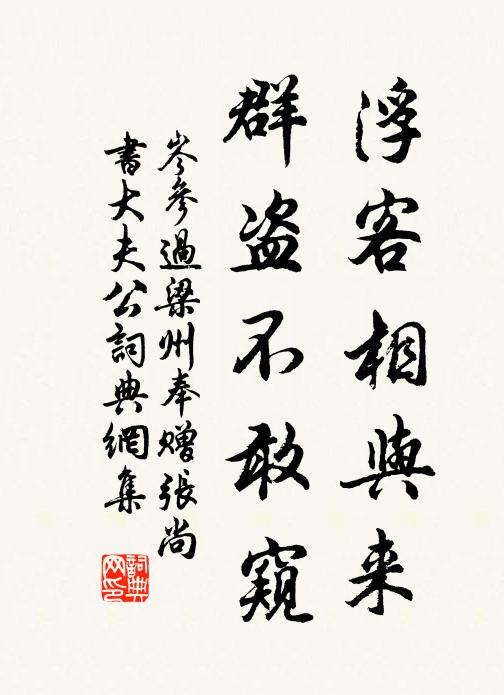 浮客相與来
群盗不敢窺
岑參過梁州奉贈張尚
書大夫公詞典網集
詞典
网印